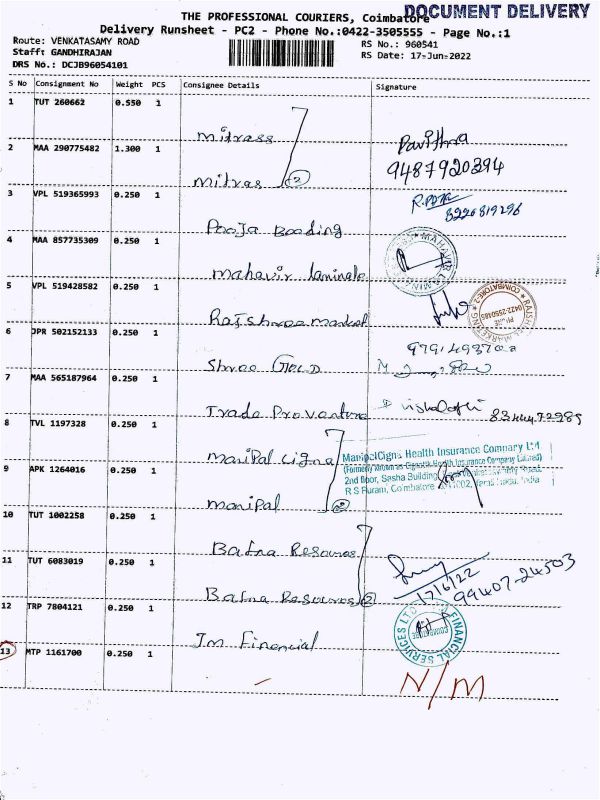 DOCUMENT DELIVERY
THE PROFESSIONAL COURIERS, Coimbatore
Delivery Runsheet - PC2 - Phone No.:0422-3505555 - Page No.:1
Route: VENKATASAMY ROAD
Staff: GANDHIRAJAN
DRS No.: DCJB96054101
RS No.: 960541
RS Date: 17-Jun-2022
S No Consignment No Weight PCS Consignee Details Signature
1 TUT 260662 0.550 1 mitrass
2 MAA 290775482 1.300 1 mitras 2 Pavithra
9487920394
3 VPL 519365993 0.250 1 Pooja Boading 8220819296
4 MAA 857735309 0.250 1 mahavir laminate MAHAVIR
5 VPL 519428582 0.250 1 Rajshree market COIMBATORE-2
6 JPR 502152133 0.250 1 Shree Gold
7 MAA 565187964 0.250 1 Trade Proventure
8 TVL 1197328 0.250 1 maniPal cigna
ManipalCigna Health Insurance Company Ltd
2nd floor, Sesha Building,
R S Puram, Coimbatore
9 APK 1264016 0.250 1 maniPal 2
10 TUT 1002258 0.250 1 Bafna Resources
11 TUT 6083019 0.250 1 Bafna Resources 2
17/6/22
99407-24503
12 TRP 7804121 0.250 1 Jm Financial FINANCIAL SERVICES LTD
13 MTP 1161700 0.250 1 - N/M